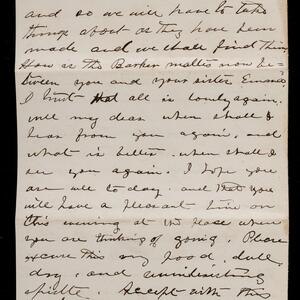 and so we will have to take
things about as they have been
made and we shall find them
How is the Barker matter now be-
tween you and your sister Emma?
I trust that all is lovely again.
will my dear when shall I
hear from you again, and
what is better, when shall I
see you again. I hope you
are well to day. and that you
will have a pleasant time on
this evening at the place where
you are thinking of going. Please
excuse this my good, dull,
dry, and uninteresting
epistle. Accept with this